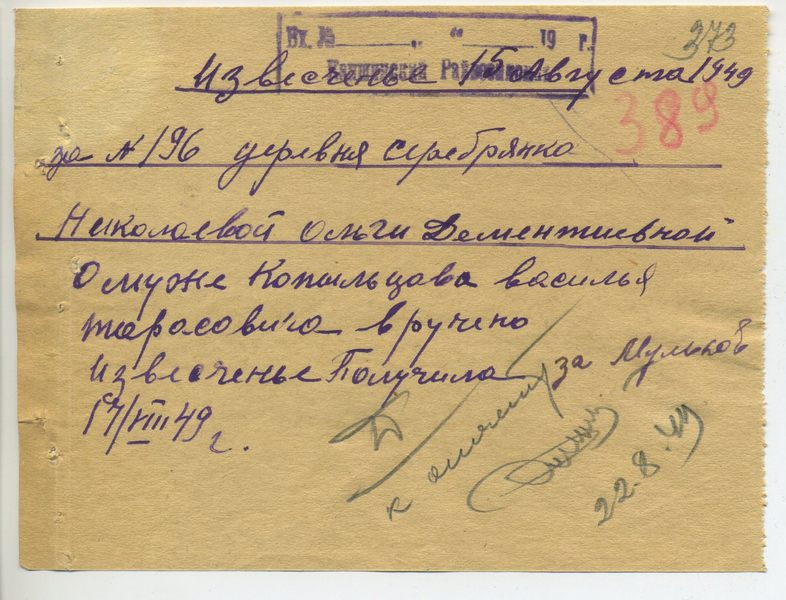 Вх. № „ “ 19 г.
273
Извесченье 15 Августа 1949
389
за N 196 деревня серебрянка
Николаевой ольги Дементиевной
О муже Копыльцова василья
тарасовича вручено
извесченье Получила за Мульков
17/VIII 49 г.
к
22.8.49